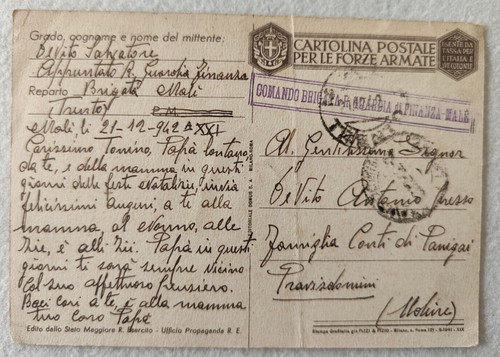 Grado, cognome e nome del mittente:
De Vito Salvatore
Appuntato R. Guardia Finanza
Reparto Brigata Malè
(Trento) P.M.
Malè li 21-12-942 XXI
Carissimo Tonino, Papà lontano
da te, e della mamma in questi
giorni delle feste Natalizie, invia
felicissimi auguri, a te alla
mamma, al Nonno, alle
Zie, è alli Zii. Papà in questi
giorni ti sarà sempre vicino
Col suo affettuoso pensiero.
Baci cari a te, è alla mamma
tuo caro Papà
Edito dallo Stato Maggiore R. Esercito - Ufficio Propaganda R. E.
CARTOLINA POSTALE
PER LE FORZE ARMATE
ESENTE DA
TASSA PER
L'ITALIA E
COMANDO BRIGATA R. GUARDIA di FINANZA - MALÈ
Al Gentilissimo Signor
De Vito Antonio presso
Famiglia Conti di Panigai
Pravisdomini
(Udine)